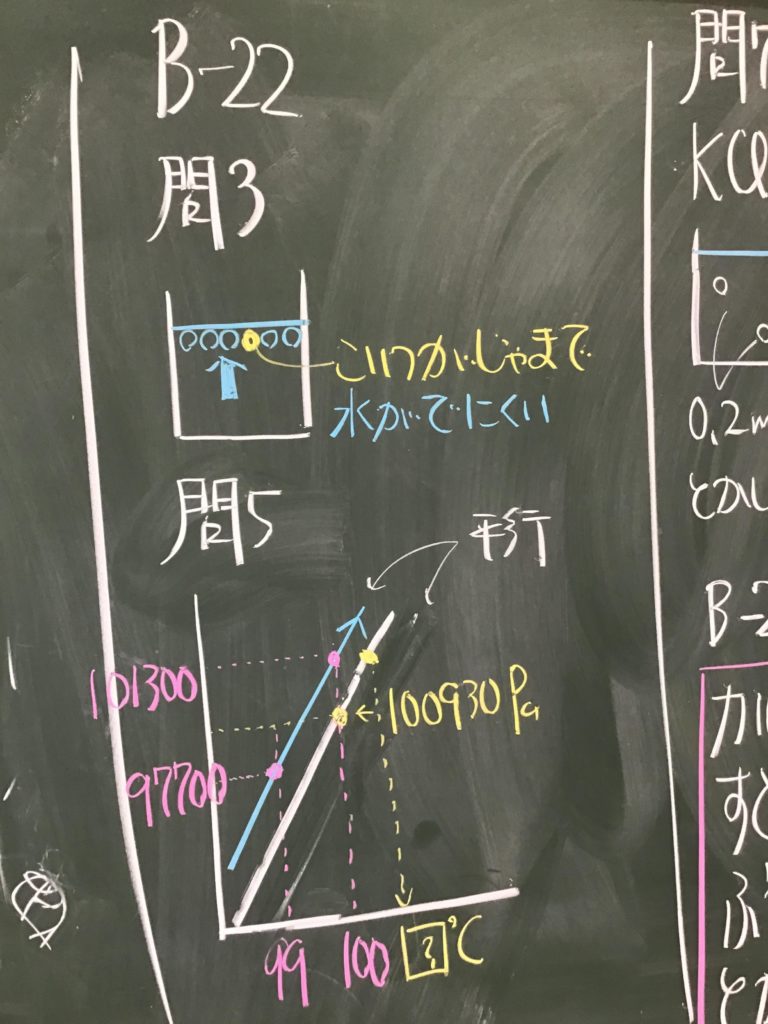 B-22
問3
こいつがじゃまで
水がでにくい
問5
平行
101300
100930Pa
97700
99 100 ?℃
問7
KCl
0.2m
とかし
B-2